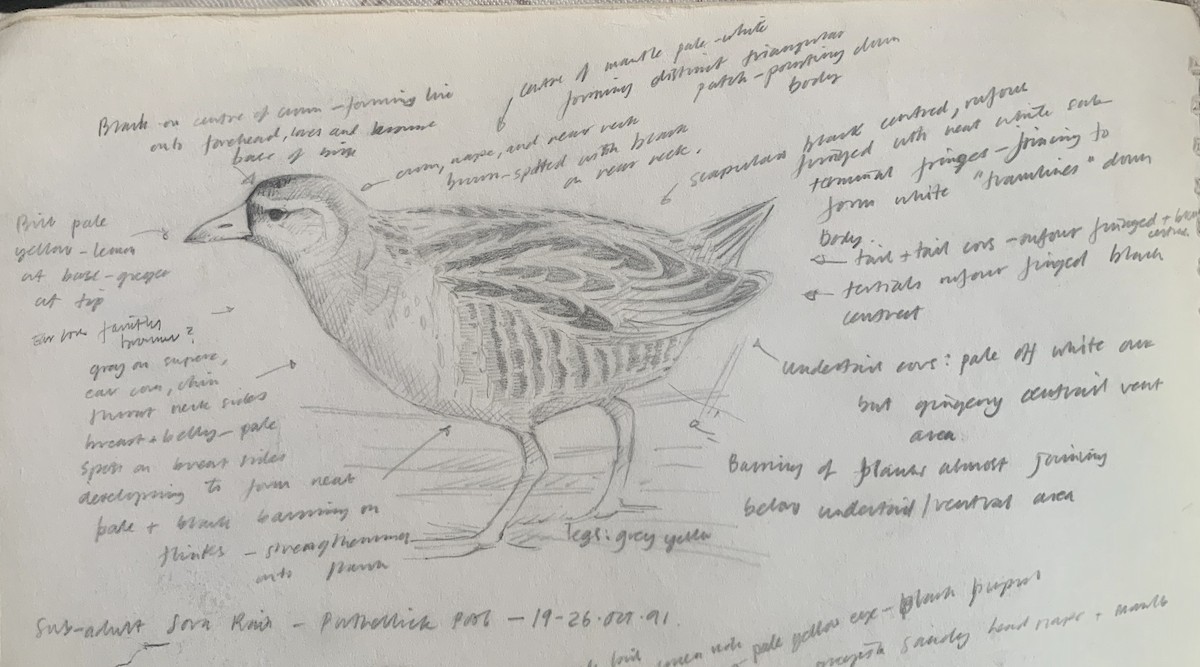 centre of mantle pale-white
forming distinct triangular
patch-pointing down
body
Black on centre of crown - forming line
onto forehead, lores and
base of
crown, nape, and rear neck
brown-spotted with black
on rear neck.
scapulars black centred, rufous
fringed with neat white sub
terminal fringes - joining to
form white "tramlines" down
body.
tail + tail covs - rufous fringed +
centres
tertials rufous fringed black
centred
Undertail covs: pale off white
but gingery central vent
area
Barring of flanks almost joining
below undertail/ventral area
Bill pale
yellow - lemon
at base - greyer
at tip
Ear covs
browner?
gray on superc,
ear covs, chin
throat neck sides
breast + belly - pale
spots on breast sides
developing to form neat
pale + black barring on
flanks - strengthening
onto flank
legs: grey yellow
Sub-adult Sora Rail - Pool - 19-26.Oct.91.
pale yellow eye - black pupil
sandy head nape + mantle